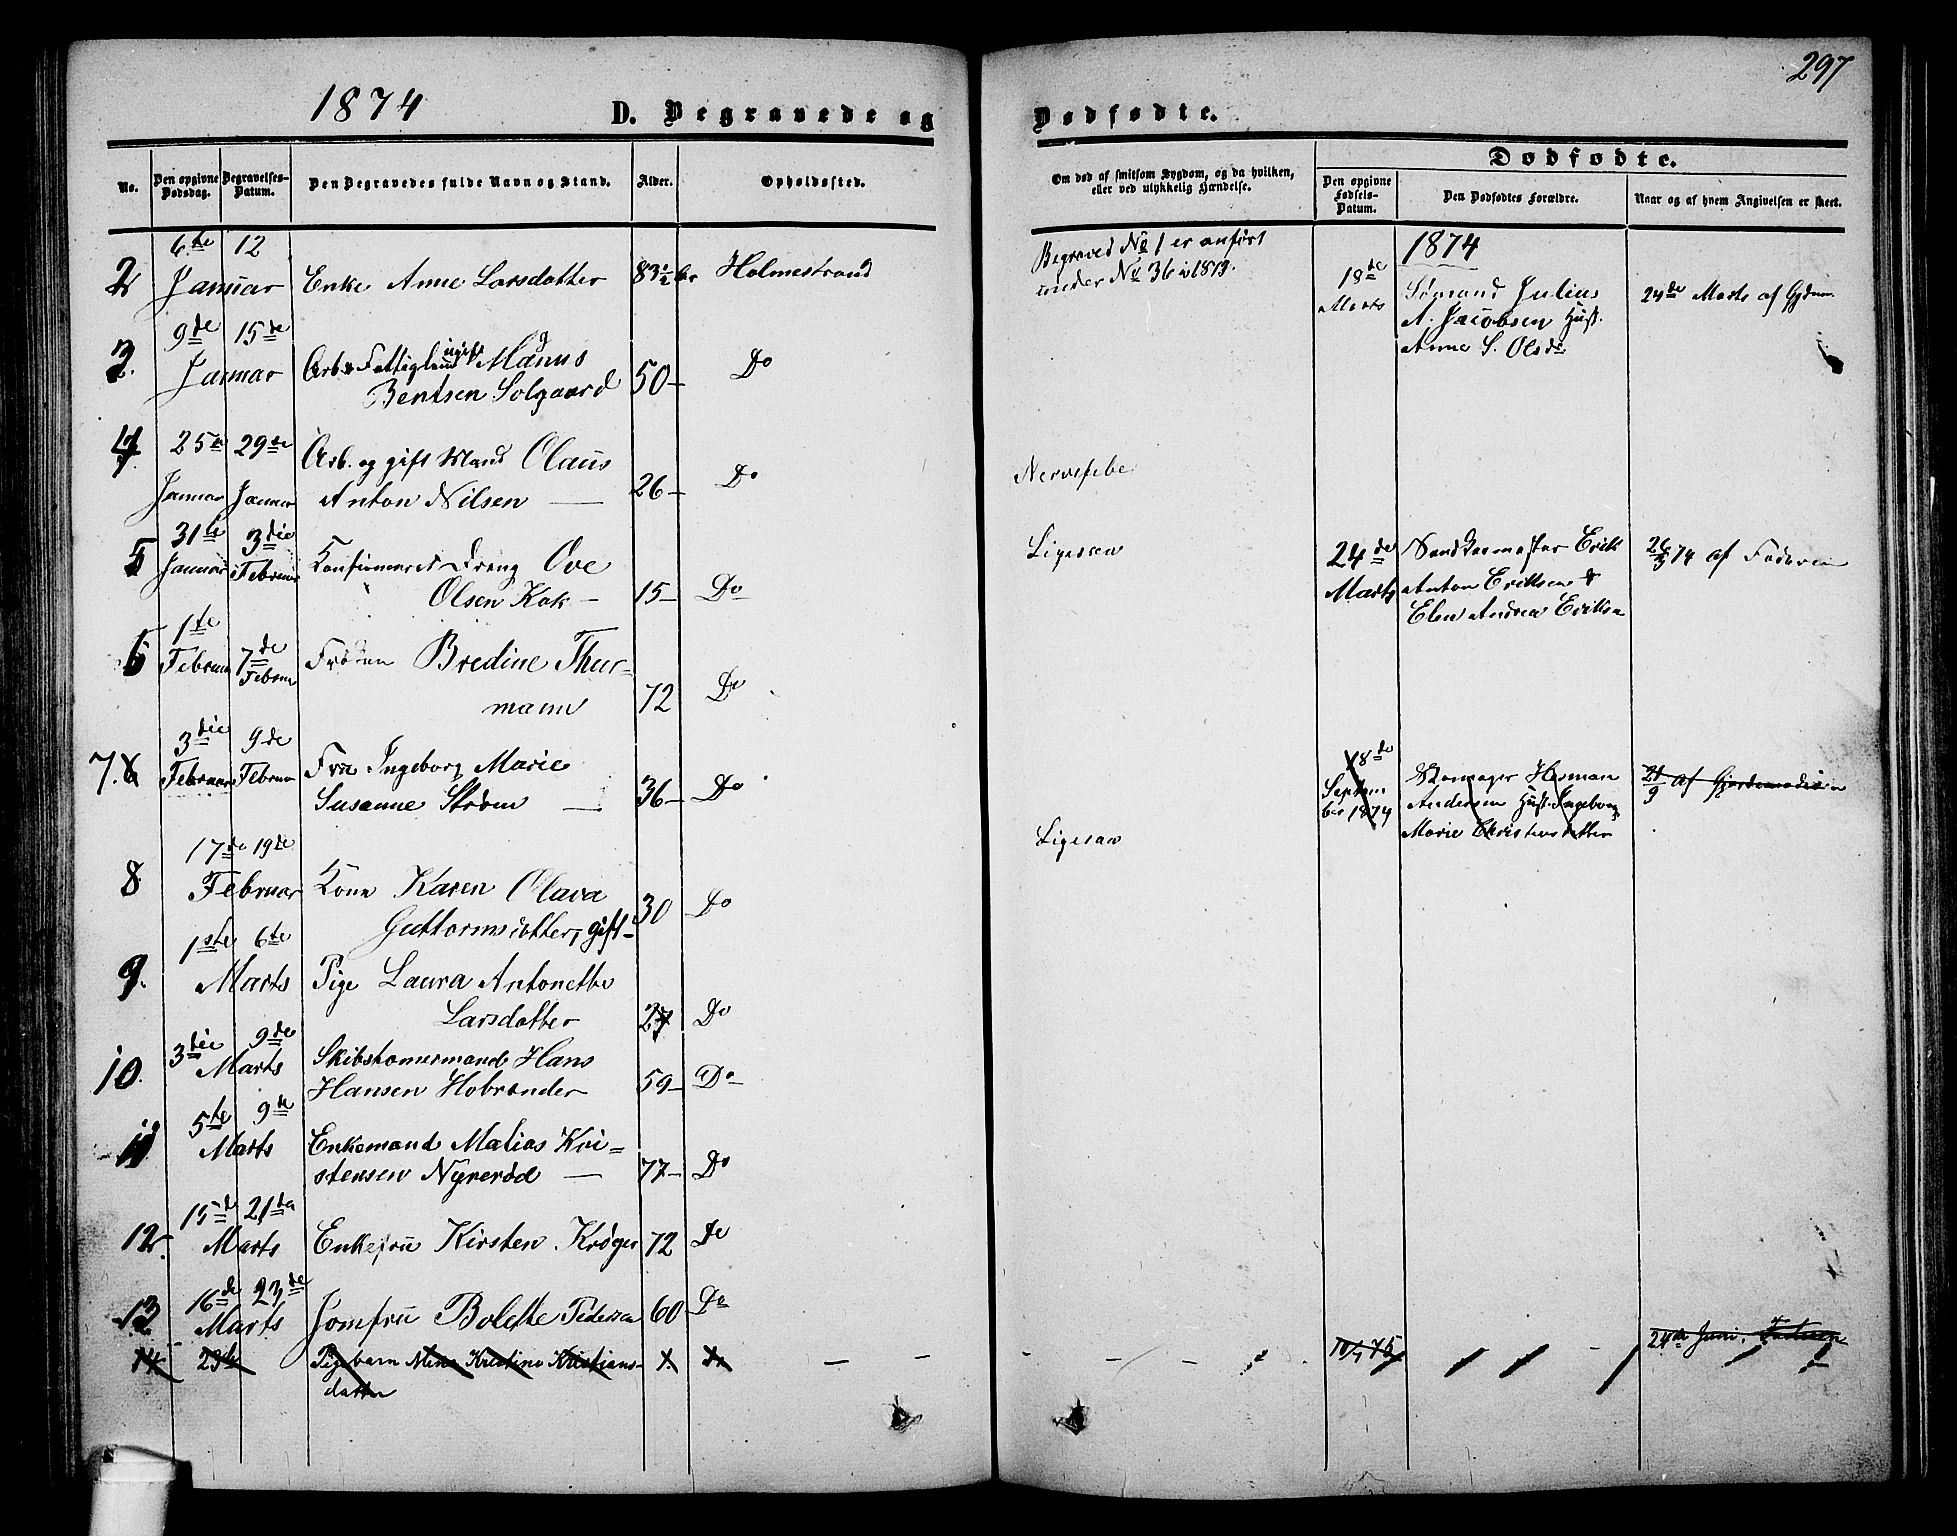 297
1874 D. Begravede og Dødfødte.
No.
Den opgivne Dødsdag.
Begravelses-Datum.
Den Begravedes fulde Navn og Stand.
Alder.
Opholdssted.
Om død af smitsom Sygdom, og da hvilken, eller ved ulykkelig Hændelse.
Dødfødte.
Den opgivne Fødsels-Datum.
Den Dødfødtes Forældre.
Naar og af hvem Angivelsen er skeet.
2 6te 12 Januar Enke Anne Larsdatter 83 1/2 Holmestrand
3. 9de 15de Januar Arb. Fattiglem ugift Mand Manus
Bentsen Solgaard 50 Do
4 25de Januar 29de Januar Arb. og gift Mand Olaus
Anton Nilsen 26 Do
5 31te Januar 3die Februar Konfirmeret Dreng Ove
Olsen Kok 15 Do
6 1te Februar 7de Februar Frøken Bredine Thur-
mann 72 Do
7. 3die Februar 9de Februar Fru Ingeborg Marie
Susanne Strøm 36 Do
8 17de 19de Februar Kone Karen Olava
Guttormsdatter, gift 30 Do
9. 1ste 6te Marts Pige Laura Antonette
Larsdatter 27 Do
10. 3die 9de Marts Skibstømermand Hans
Hansen Hobrander 59 Do
11 5te 9de Marts Enkemand Matias Kri-
stensen Nyrerød 77 Do
12. 15de 21de Marts Enkefru Kirsten Krøger 72 Do
13 16de 23de Marts Jomfru Bolette Pedersen 60 Do
14 23de Pigebarn Mina Kristine Kristians-
datter
Begraved No 1 er anført
under No 36 i 1873.
Nervefeber
Ligesaa
Ligesaa
1874
18de Marts Sømand Julius
A. Jacobsen Hust.
Anne S. Olsdr
24de Marts af
24de Marts Erik
Anton Eriksen &
Elen Andrea Eriksen
26/3 74 af Faderen
18de September 1874 Herman
Andersen Hust. Ingeborg
Marie Christensdatter
21/9 af Gjordemoderen
24de Juni.